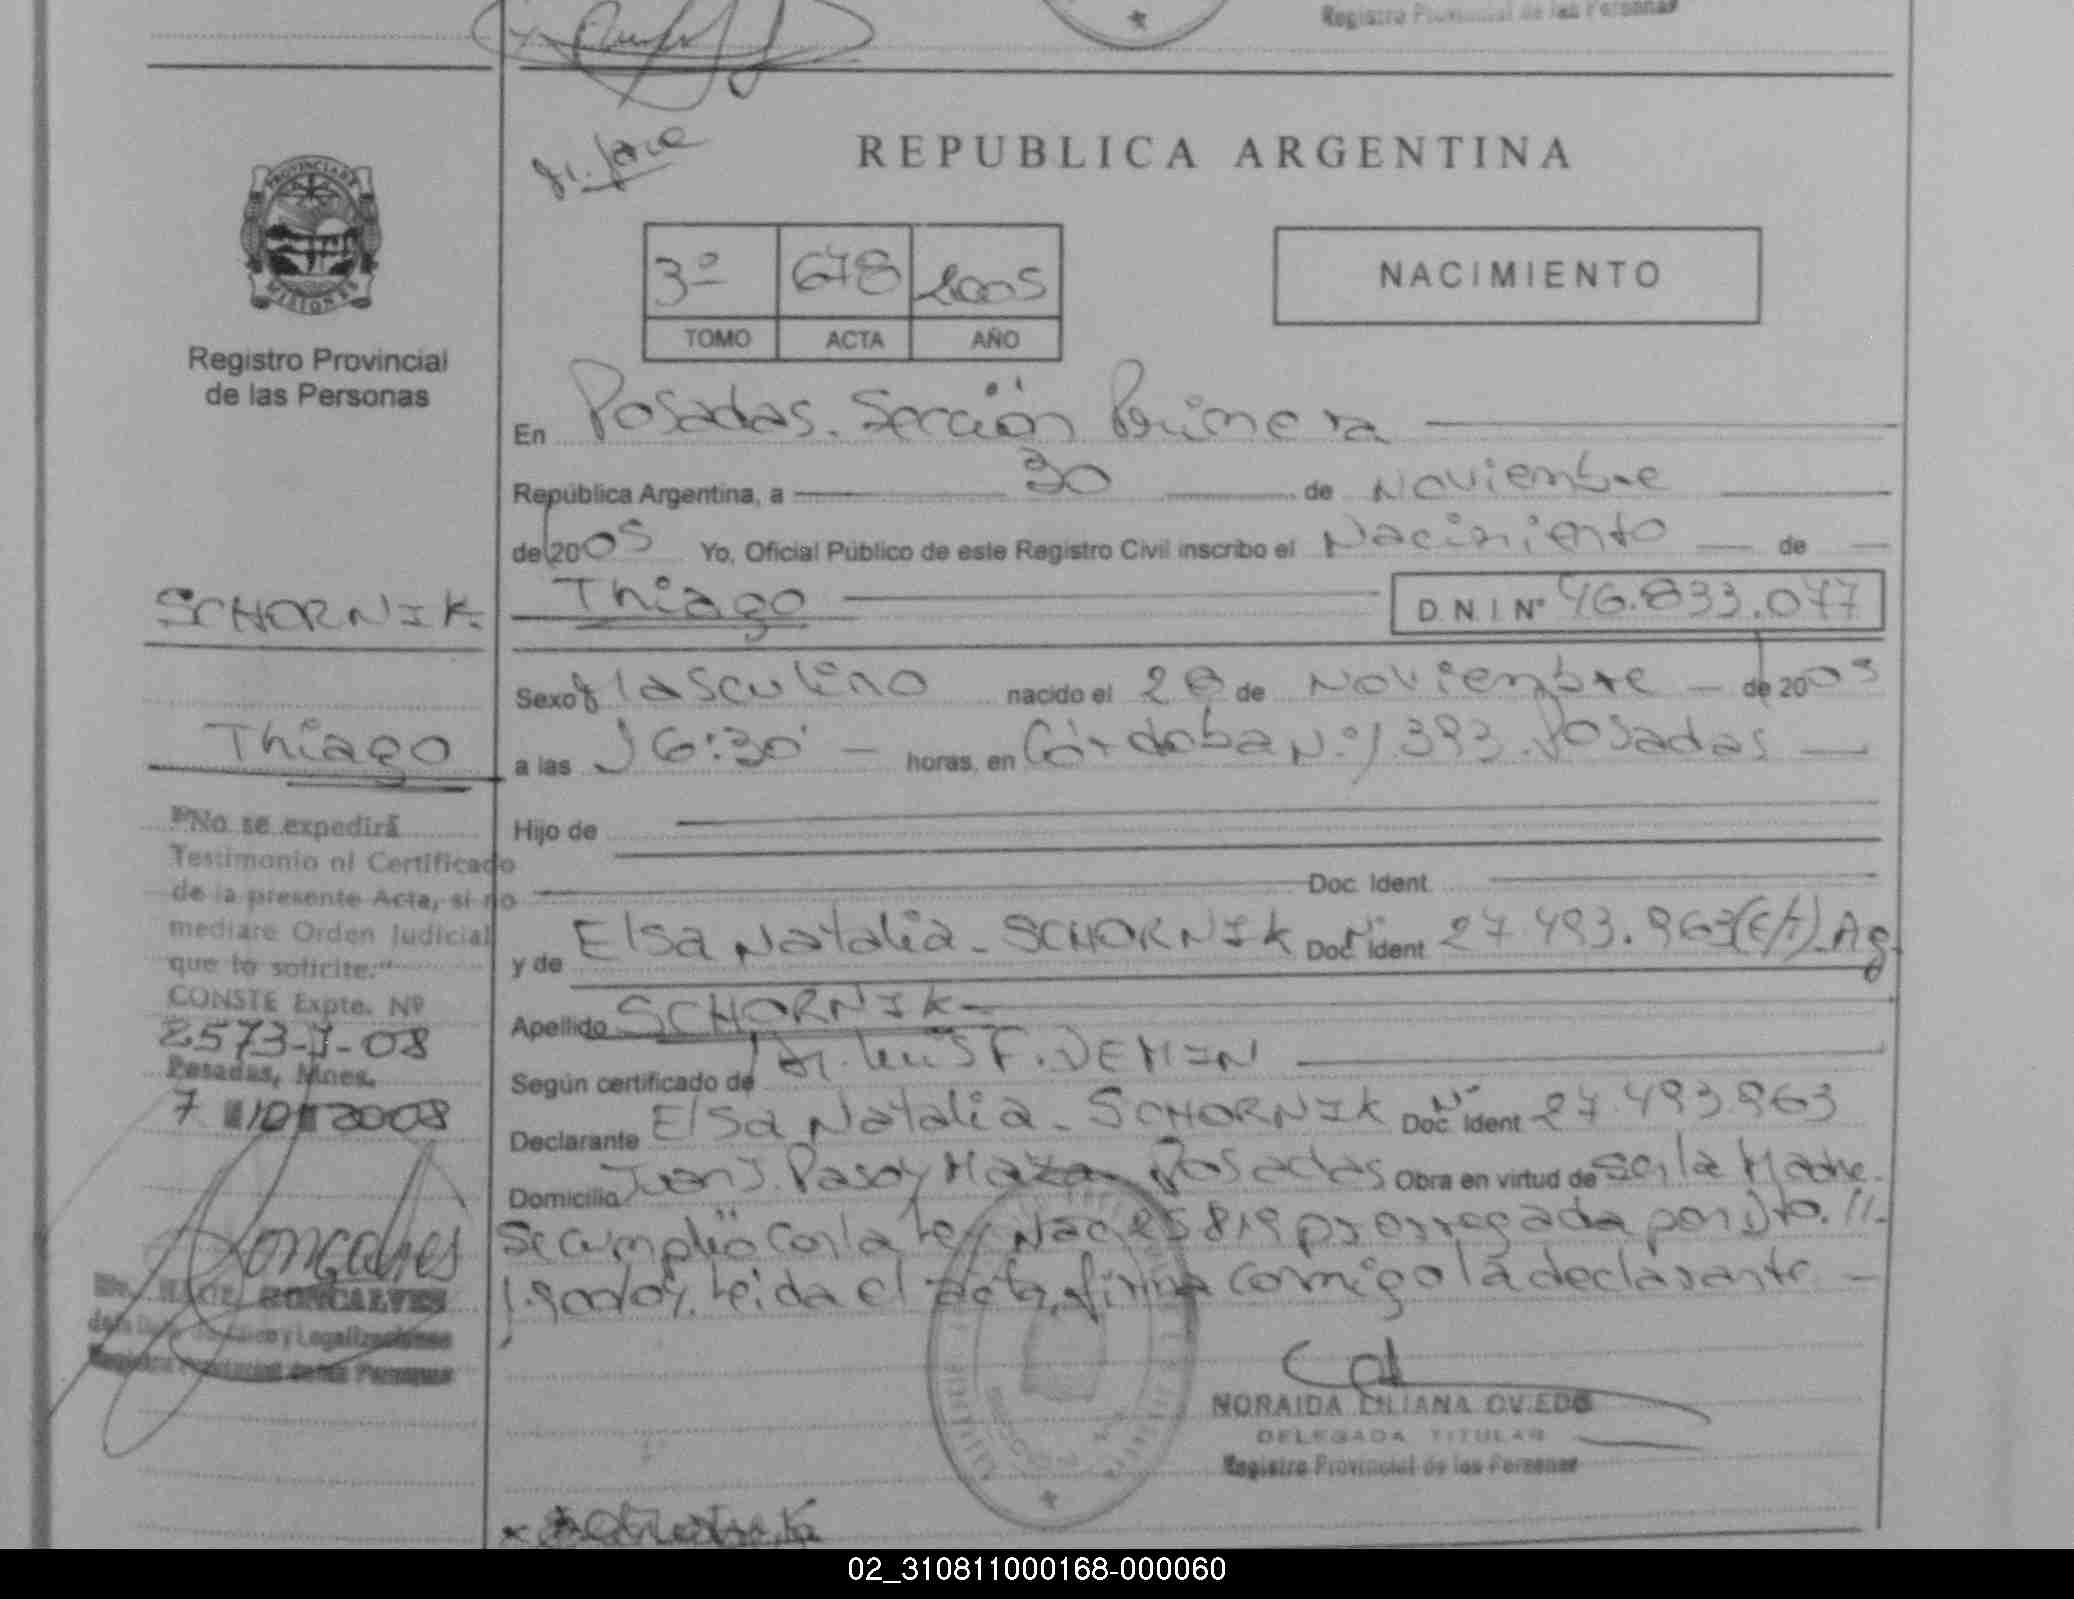 Registro Provincial de las Personas
REPUBLICA ARGENTINA
PROVINCIA DE
MISIONES
Registro Provincial
de las Personas
3º 678 2005
TOMO ACTA AÑO
NACIMIENTO
En Posadas. Sección Primera
República Argentina, a 30 de Noviembre
de 2005 Yo, Oficial Público de este Registro Civil inscribo el Nacimiento de
Thiago D.N.I Nº 46.833.077
SCHORNIK
Thiago
Sexo Masculino nacido el 28 de Noviembre de 2005
a las 16:30 horas, en Córdoba Nº 1393. Posadas
Hijo de
Doc. Ident.
y de Elsa Natalia - SCHORNIK Doc. Ident. Nº 27.493.963 Ag.
Apellido SCHORNIK
Según certificado de Dr. Luis F. DEMIN
Declarante Elsa Natalia - SCHORNIK Doc. Ident Nº 27.493.963
Domicilio Juan J. Paso y Maza Posadas Obra en virtud de ser la Madre.
Se cumplió con la Ley Nac. 25819 prorrogada por Dto.
Leida el acta, firma conmigo la declarante
"No se expedirá
Testimonio ni Certificado
de la presente Acta, si no
mediare Orden Judicial
que lo solicite."
CONSTE Expte. Nº
2573-J-08
Posadas, Mnes.
7 10 2008
Goncalves
GONCALVES
y Legalizaciones
Registro Provincial de las Personas
NORAIDA LILIANA OVIEDO
DELEGADA TITULAR
Registro Provincial de las Personas
02_310811000168-000060